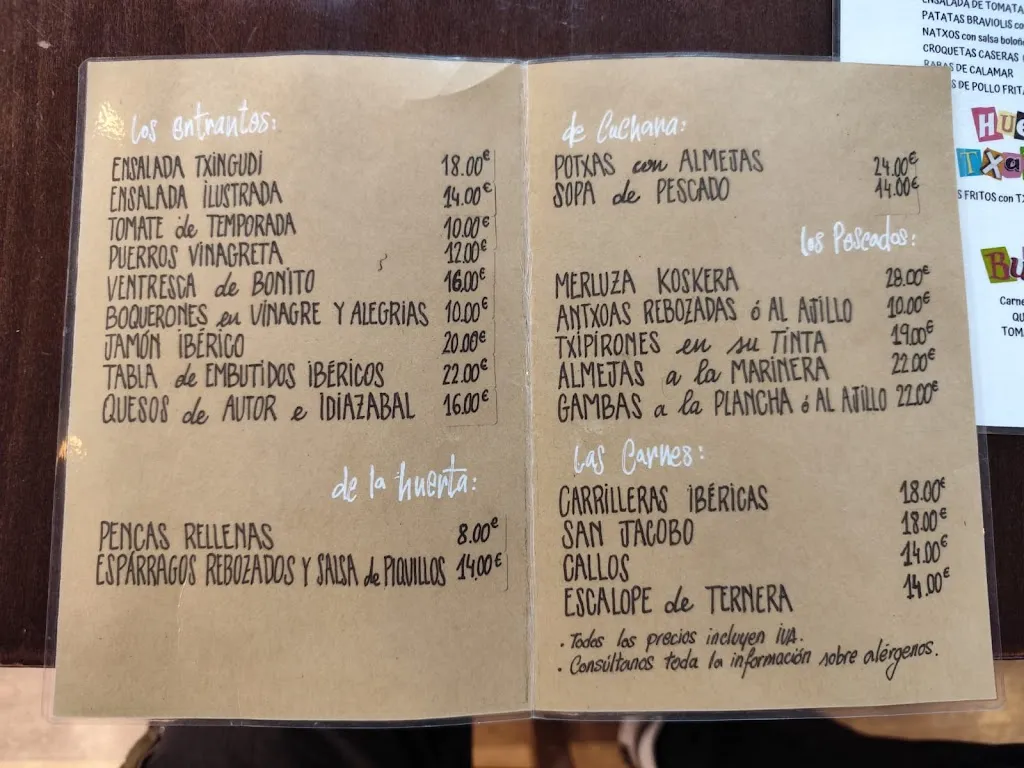 los entrantes:
ENSALADA TXINGUDI 18.00€
ENSALADA ILUSTRADA 14.00€
TOMATE de TEMPORADA 10.00€
PUERROS VINAGRETA 12.00€
VENTRESCA de BONITO 16.00€
BOQUERONES en VINAGRE Y ALEGRIAS 10.00€
JAMÓN IBÉRICO 20.00€
TABLA de EMBUTIDOS IBÉRICOS 22.00€
QUESOS de AUTOR e IDIAZABAL 16.00€
de la huerta:
PENCAS RELLENAS 8.00€
ESPÁRRAGOS REBOZADOS Y SALSA de PIQUILLOS 14.00€
de Cuchara:
POTXAS con ALMEJAS 24.00€
SOPA de PESCADO 14.00€
los Pescados:
MERLUZA KOSKERA 28.00€
ANTXOAS REBOZADAS ó AL AJILLO 10.00€
TXIPIRONES en su TINTA 19.00€
ALMEJAS a la MARINERA 22.00€
GAMBAS a la PLANCHA ó AL AJILLO 22.00€
Las Carnes:
CARRILLERAS IBÉRICAS 18.00€
SAN JACOBO 18.00€
CALLOS 14.00€
ESCALOPE de TERNERA 14.00€
· Todos los precios incluyen IVA.
· Consúltanos toda la información sobre alérgenos.
ENSALADA DE TOMATA
PATATAS BRAVIOLIS
NATXOS con salsa
CROQUETAS CASERAS
RABAS DE CALAMAR
DE POLLO
FRITOS con
Carne